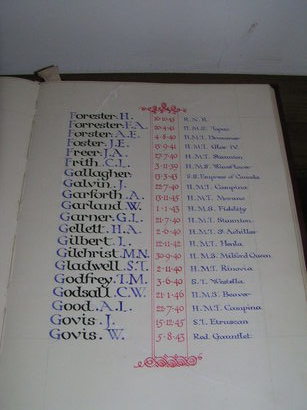 Forester. H. 10·10·45 R.N.R.
Forrester. F.A. 10·4·41 H.M.S. Topaz
Forster. A.E. 4·8·40 H.M.T. Drummer
Foster. J.E. 15·9·41 H.M.T.
Freer. J.A. 27·7·40 H.M.T. Staunton
Frith. C.L. 3·11·39 H.M.S.
Gallagher 13·3·43 S.S. Empress of Canada
Galvin. J. 22·7·40 H.M.T. Campina
Garforth. A. 13·11·45 H.M.T.
Garland. W. 1·1·43 H.M.S. Fidelity
Garner. G.L. 21·7·40 H.M.T. Staunton
Gellett. H.A. 2·6·40 H.M.T. St Achilles
Gilbert. L. 22·11·42 H.M.T. Hekla
Gilchrist. M.N. 30·9·40 H.M.S. Milford Queen
Gladwell. S.T. 2·11·40 H.M.T. Rinovia
Godfrey. T.M. 3·6·40 S.T. Westella
Godsall. C.W. 21·1·46 H.M.S. Beaver
Good. A.L. 22·7·40 H.M.T. Campina
Govis. J. 15·12·45 S.T. Etruscan
Govis. W. 5·8·43 Red Gauntlet